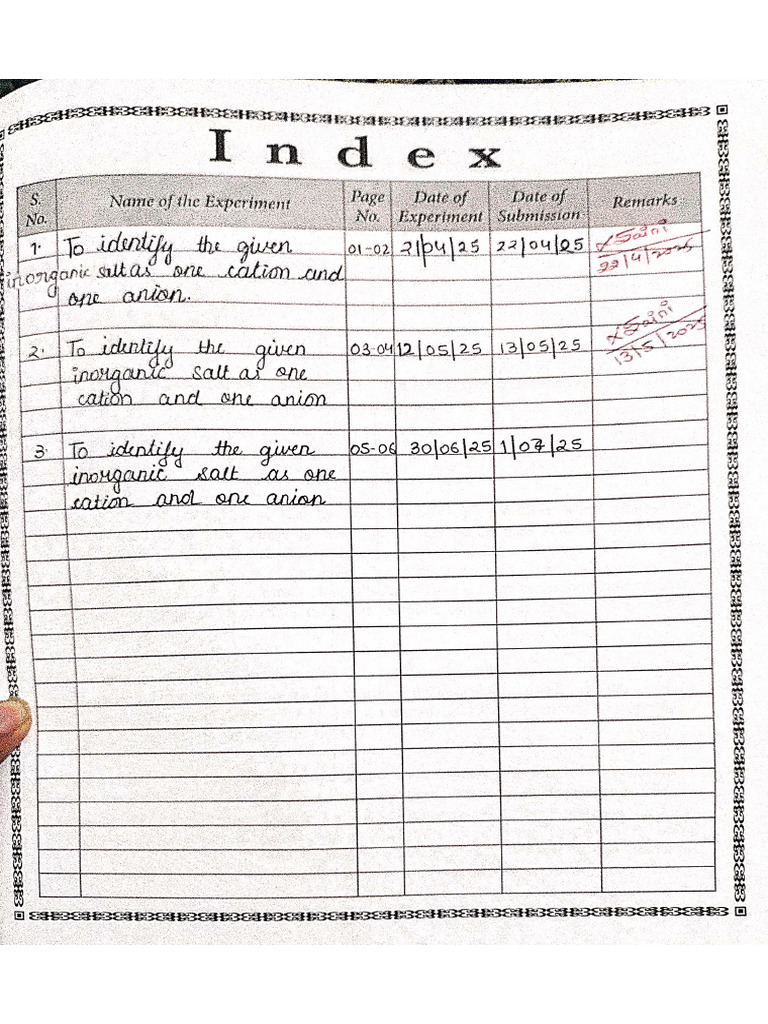 Index
S. No. Name of the Experiment Page No. Date of Experiment Date of Submission Remarks
1. To identify the given 01-02 21/04/25 22/04/25 Saini
inorganic salt as one cation and 22/4/2025
one anion.
2. To identify the given 03-04 12/05/25 13/05/25 Saini
inorganic salt as one 13/5/2025
cation and one anion
3. To identify the given 05-06 30/06/25 1/07/25
inorganic salt as one
cation and one anion